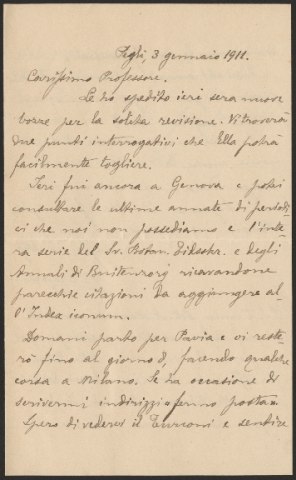 Pegli, 3 gennaio 1911.
Carissimo Professore.
Le ho spedito ieri sera nuove
bozze per la solita revisione. Vi troverà
due punti interrogativi che Ella potrà
facilmente togliere.
Ieri fui ancora a Genova e potei
consultare le ultime annate di periodi-
ci che noi non possediamo e l'inte-
ra serie del Sv. Botan. Tidsskr. e degli
Annali di Buitenzorg ricavandone
parecchie citazioni da aggiungere al-
l'Index iconum.
Domani parto per Pavia e vi reste-
rò fino al giorno 8, facendo qualche
corsa a Milano. Se ha occasione di
scrivermi indirizzi "fermo posta".
Spero di vedervi il Turconi e sentire